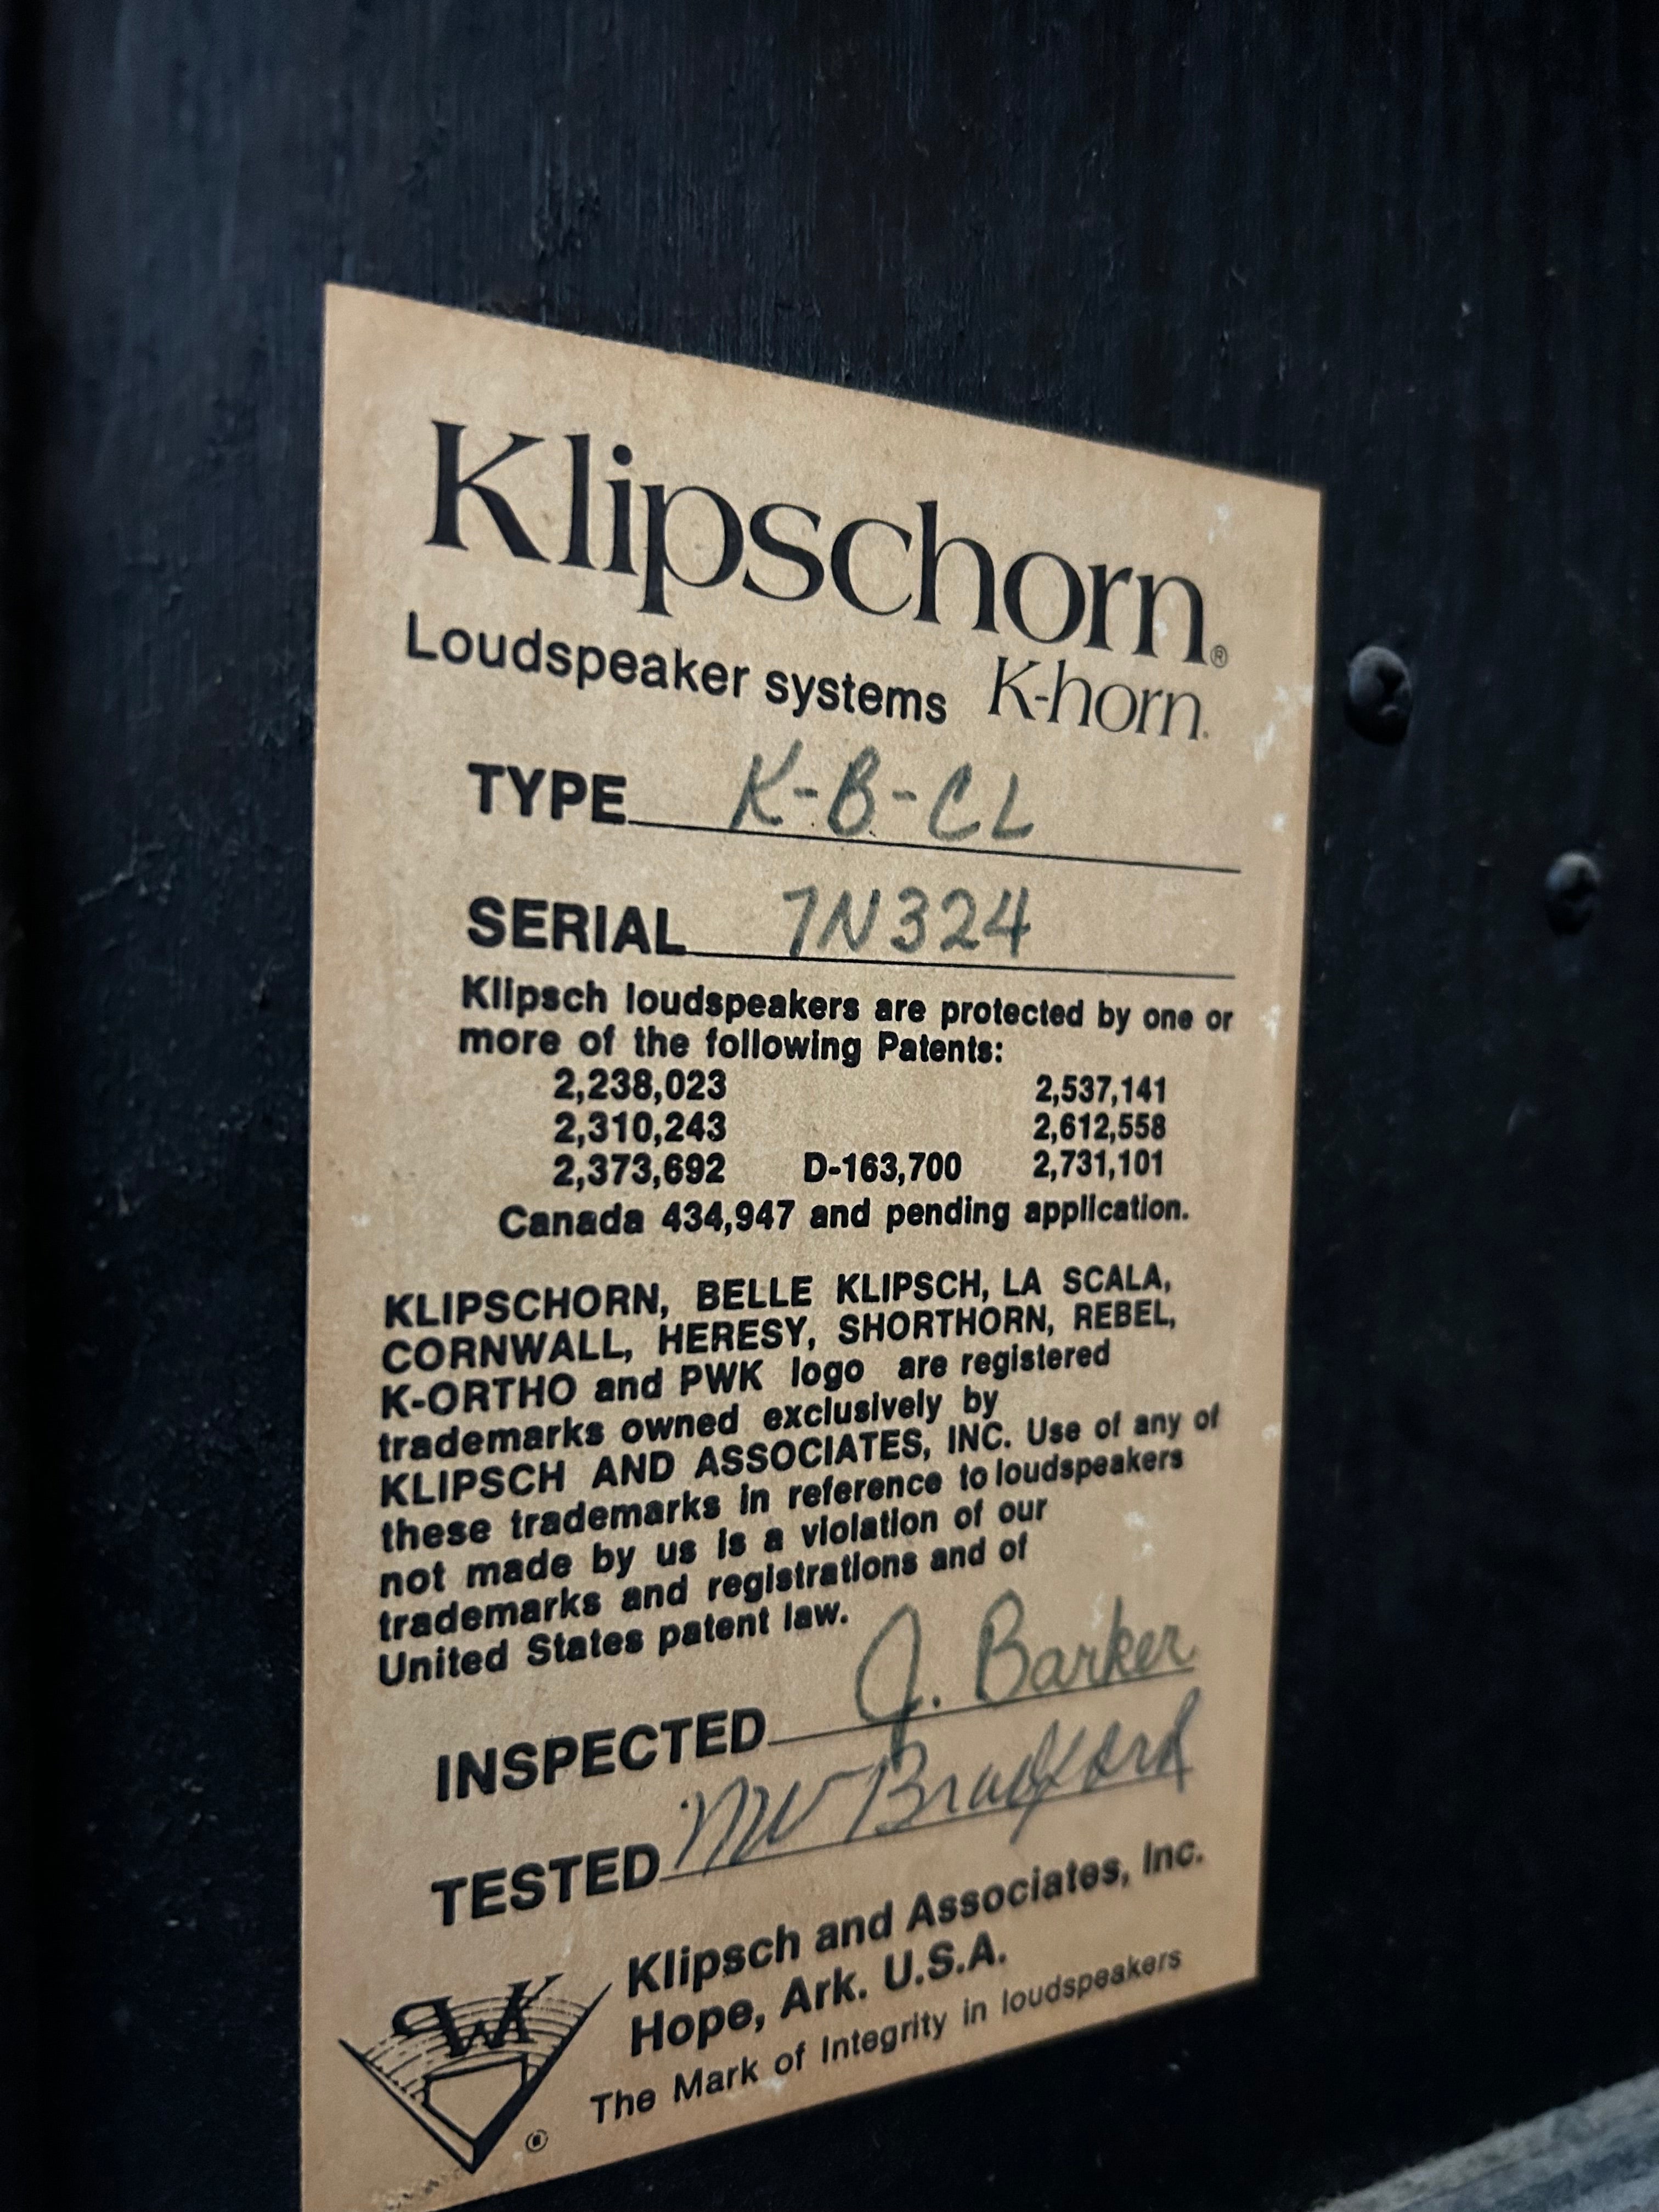 Klipschorn®
Loudspeaker systems K-horn.
TYPE K-B-CL
SERIAL 7N324
Klipsch loudspeakers are protected by one or
more of the following Patents:
2,238,023 2,537,141
2,310,243 2,612,558
2,373,692 D-163,700 2,731,101
Canada 434,947 and pending application.
KLIPSCHORN, BELLE KLIPSCH, LA SCALA,
CORNWALL, HERESY, SHORTHORN, REBEL,
K-ORTHO and PWK logo are registered
trademarks owned exclusively by
KLIPSCH AND ASSOCIATES, INC. Use of any of
these trademarks in reference to loudspeakers
not made by us is a violation of our
trademarks and registrations and of
United States patent law.
INSPECTED J. Barker
TESTED MW Bradford
Klipsch and Associates, Inc.
Hope, Ark. U.S.A.
The Mark of Integrity in loudspeakers
PWK ®